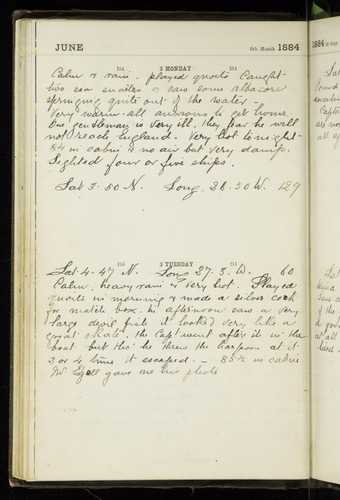 JUNE 6th Month 1884
2 MONDAY
Calm & rain. played quoits Caught
two sea snakes & saw some albacore
springing quite out of the water.
Very warm all anxious to get home
One gentleman is very ill, they fear he will
not reach England. Very hot to night
84 in cabin & no air but very damp.
Sighted four or five ships.
Lat 3. 50 N. Long. 28. 30 W. 129
3 TUESDAY
Lat 4. 47 N. Long 27. 3. W. 60
Calm, heavy rain & very hot. Played
quoits in morning & made a silver cork
for match box. In afternoon saw a very
large devil fish it looked very like a
great skate. the Capt went after it in the
boat but tho' he threw the harpoon at it
3 or 4 times it escaped. _ 85½ in cabin
Mr gave me his photo
1884